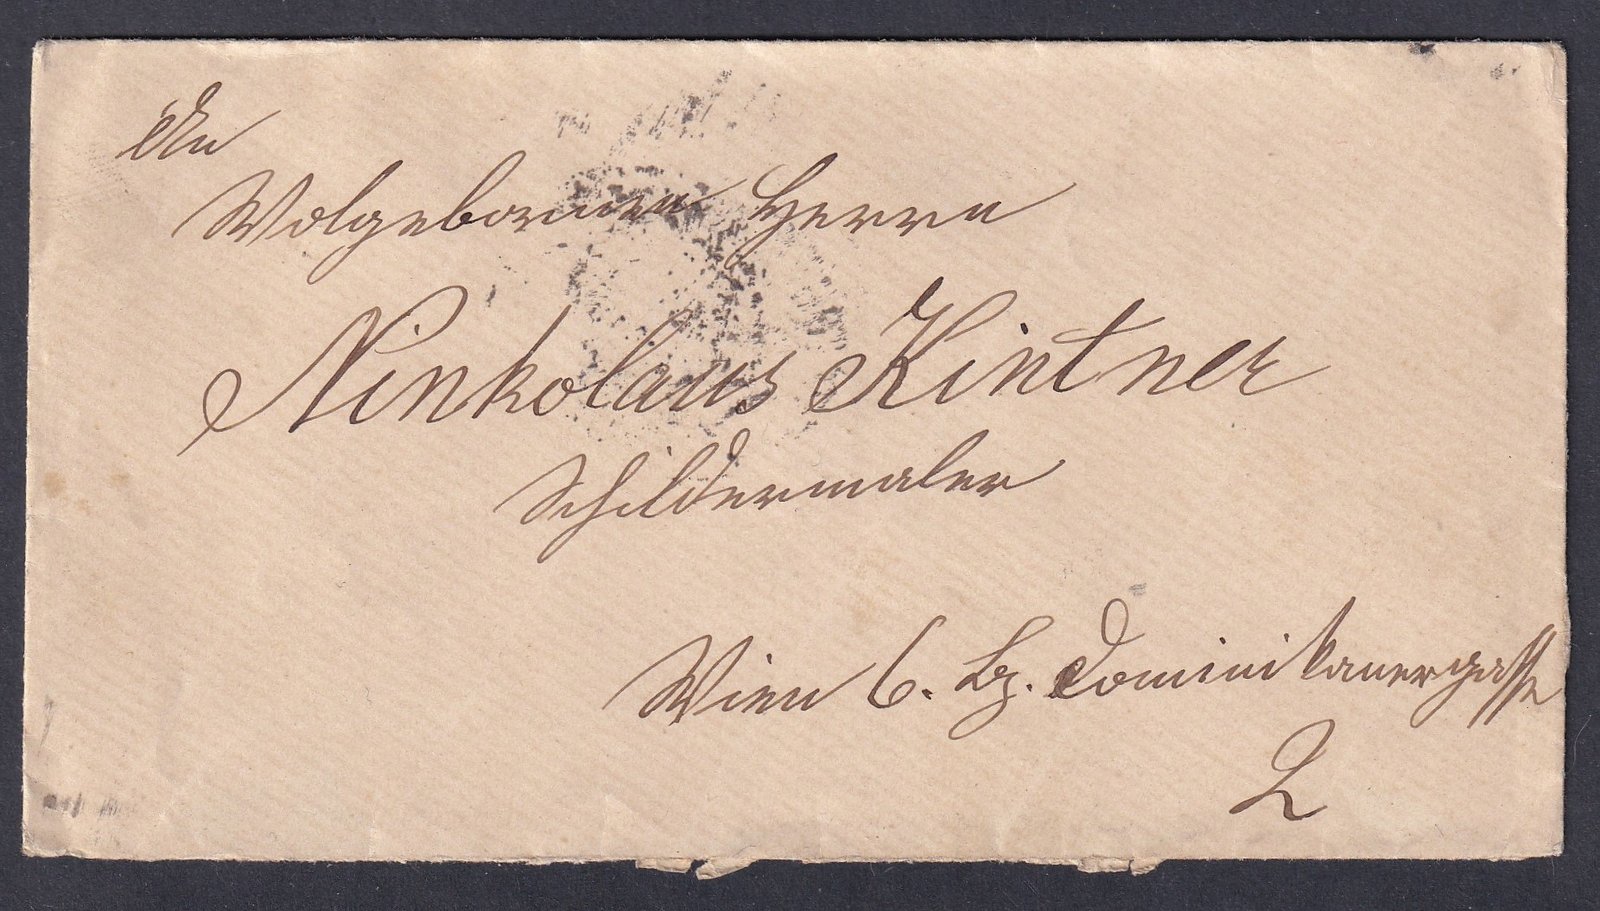 An
Wolgebornen Herrn
Ninkolaus Kintner
Schildermaler
Wien 6. Bz. Dominikanergasse
2